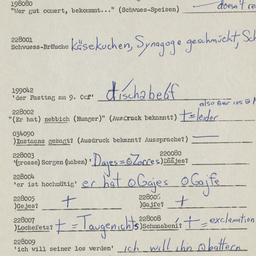 198080 doesn't re
"Wer gut osuert, bekommt..." (Schwues-Speisen)
228001
Schwuess-Bräuche Käsekuchen, Synagoge geschmückt, Sch
199042
'der Fasttag am 9. Oct' dischabeaf
228002 also
"(Er hat) nebbich (Hunger)" (Ausdruck bekannt?) t=leider
034090
)Instanz gesagt? (Ausdruck bekannt? Aussprache?)
228003 220080
'(grosse)Sorgen(haben)' Dajes=⊙Zorres )Dāājes?
228004
'er ist hochmütig' er hat ⊙Gajes ⊙Gajfe
228005 t 228006 t
)Gajes? )Gajfe?
228007 228008
)Lochefets? t = Taugenichts )Schmabeni? t = exclamation
228009
'ich will seiner los werden' ich will ihn ⊙battern